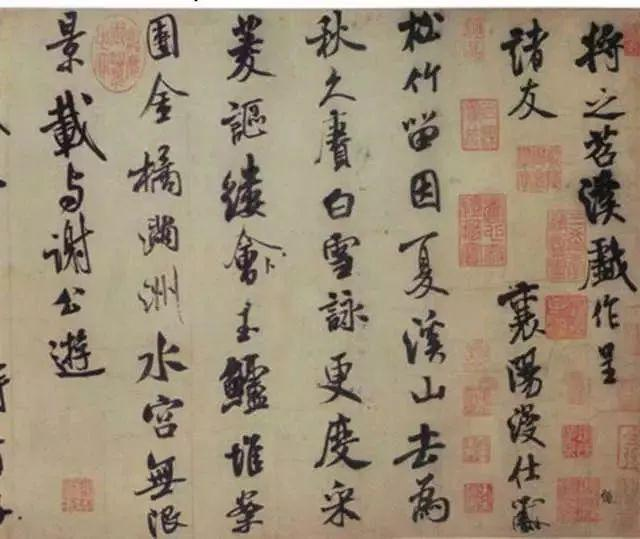 將之苕溪戲作呈
諸友
襄陽漫仕黻
松竹留因夏溪山去為
秋久賡白雪詠更度采
菱謳縷會卜玉鱸堆案
團金橘滿洲水宮無限
景載与謝公遊